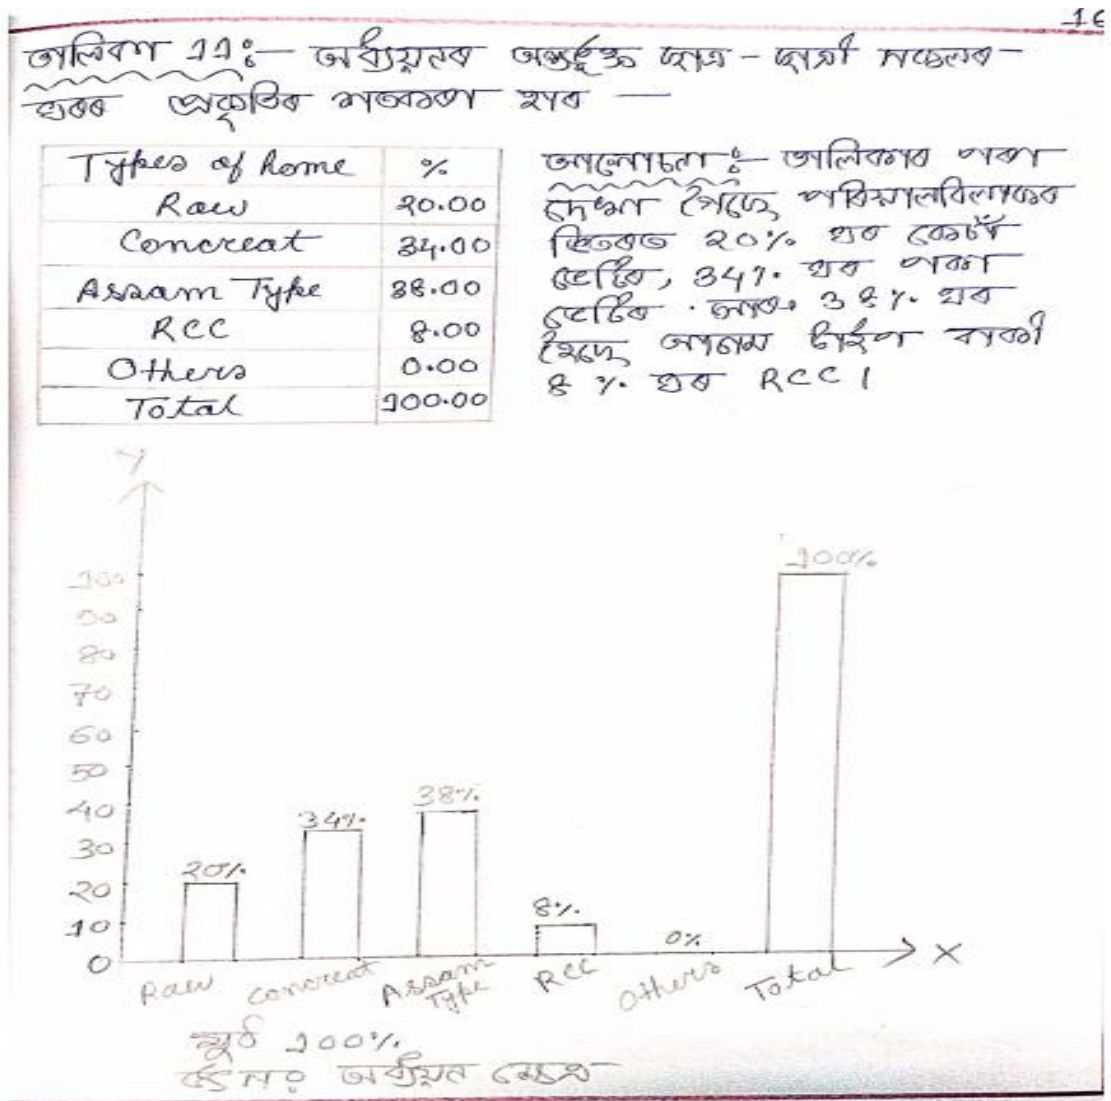 16
তালিকা 11:- অধ্যয়নৰ অন্তৰ্ভূক্ত ছাত্ৰ - ছাত্ৰী সকলৰ
ঘৰৰ প্ৰকৃতিৰ শতকৰা হাৰ —
Types of home %
Raw 20.00
Concreat 34.00
Assam Type 38.00
RCC 8.00
Others 0.00
Total 100.00
আলোচনা:- তালিকাৰ পৰা
দেখা গৈছে পৰিয়ালবিলাকৰ
ভিতৰত 20% ঘৰ কেচাঁ
ভেটিৰ, 34% ঘৰ পকা
ভেটিৰ. আৰু 38% ঘৰ
হৈছে আসাম টাইপ বাকী
8 % ঘৰ RCC।
Y
100
90
80
70
60
50
40
30
20
10
0
20%
34%
38%
8%
0%
100%
Raw
Concreat
Assam
Type
RCC
Others
Total
X
মুঠ 100%
অধ্যয়ন ক্ষেত্ৰ